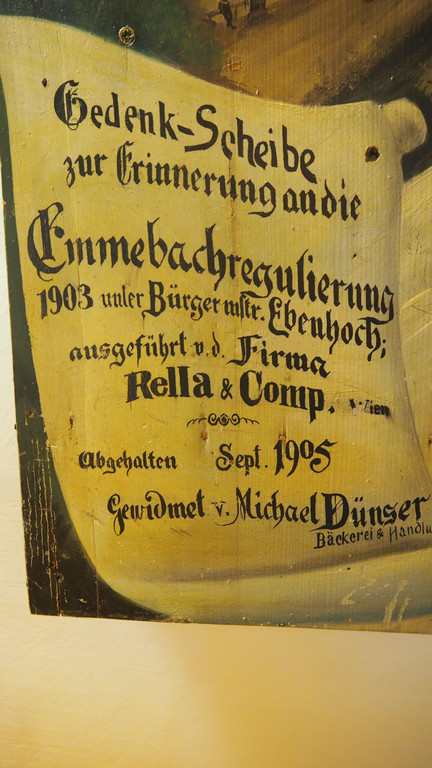 Gedenk-Scheibe
zur Erinnerung an die
Emmebachregulierung
1903 unter Bürgermstr. Ebenhoch;
ausgeführt v. d. Firma
Rella & Comp. Wien
Abgehalten Sept. 1905
Gewidmet v. Michael Dünser
Bäckerei & Handlu